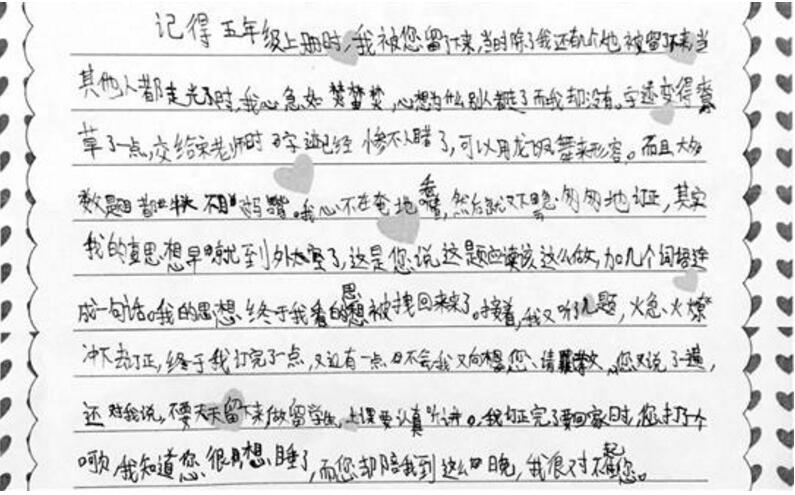 记得五年级上册时,我被您留了下来,当时除了我还有几个也被留下来,当
其他人都走光了时,我心急如焚,心想为什么别人都走了而我却没有。字迹变得潦
草了一点,交给宋老师时字迹已经惨不人睹了,可以用龙飞凤舞来形容。而且大多
数题目都。我心不在焉地,然后就又匆匆地订正,其实
我的思想早就到外太空了,这是您说这题应该这么做,加几个词语连
成一句话。我的思想终于被拽回来了。接着,我又听了几题,火急火燎
冲下去订正,终于我订完了一点,又近有一点不会,我又向您请教,您又说了一遍,
还对我说,不要天天留下来做留学生,上课要认真听讲。我订正完了要回家时,您打了个
哈欠,我知道您很想睡了,而您却陪我到这么晚,我很对不起您。